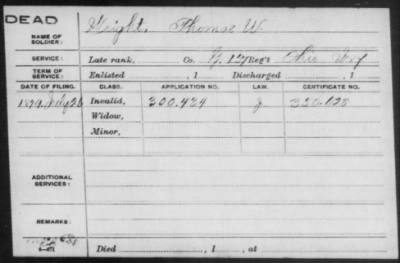 DEAD
NAME OF SOLDIER: Height, Thomas W.
SERVICE: Late rank, Co. G, 127 Reg't Ohio Inf
TERM OF SERVICE: Enlisted , 1 Discharged , 1
DATE OF FILING. CLASS. APPLICATION NO. LAW. CERTIFICATE NO.
1879 July 26 Invalid, 300.434
Widow,
Minor,
ADDITIONAL SERVICES:
REMARKS:
Died , 1 , at